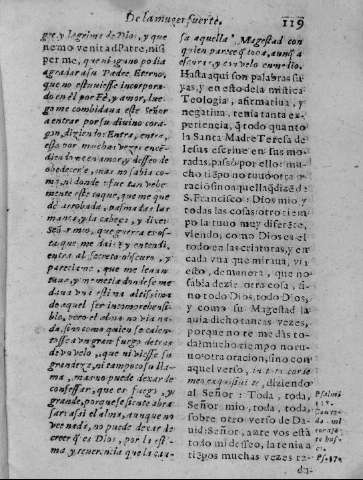 De la muger fuerte. 119
gre, y lagrimas de Dios, y que
nemo venit ad Patrẽ, nisi
per me, que ninguno podia
agradar a su Padre Eterno,
que no estuuiesse incorpora-
do en èl por Fè, y amor, lue-
go me combidaua este señor
a entrar por su diuino coraçon,
diziendo: Entra, entra,
esto por muchas vezes encẽ-
diendome en amor, y desseo de
obedecerle, mas no sabia co-
mo,
mente esta toque, que me que
dè arrobada,
mança, y la cabeça, y dixe:
Señor mio, que guerra es es-
ta que me dais? y entendi,
entra al secreto obscuro, y
pareciame, que me leuan
taua, y me metia donde se me
daua vna vista altissima
de aquel ser incomprehensi-
ble, pero el alma no via na-
da, sino como quien se calen-
tasse a vn gran fuego detras
de vn velo, que ni viesse su
grandeza, ni tampoco su lla-
ma, mas no puede dexar de
confessar, que es fuego, y
grande, porque se siente abra-
sar: assi el alma, aunque no
vee nada, no puede dexar de
creer q̃ es Dios, por la esti-
ma, y reuerencia que la cau-
sa aquella Magestad con
quien parece q̃ toca, aunq̃ a
escuras, y con velo en medio.
Hasta aqui son palabras su-
yas, y en esto de la mistica
Teologia, afirmatiua, y
negatiua, tenia tanta ex-
periencia, q̃ todo quanto
la Santa Madre Teresa de
Iesus escriue en sus mo-
radas, passò por ello: mu-
cho tiẽpo no tuuo otra o-
racion sino aquella q̃ dizẽ de
S. Francisco: Dios mio y
todas las cosas; otro tiem-
po la tuuo muy diferẽte,
viendo, como Dios es el
todo en las criaturas, y en
cada vna que miraua, vi
esto, de manera, que no
sabia dezir otra cosa, si-
no todo Dios, todo Dios,
y como su Magestad la
auia dicho tantas vezes,
porque no te me dàs to-
da? mucho tiempo no tu-
uo otra oracion, sino con
aquel verso, in toto corde
meo exquisiui te, diziendo
al Señor: Toda, toda,
Señor mio, toda, toda,
sobre otro verso de Da-
uid: Señor, ante vos està
todo mi desseo, la tenia a
tiẽpos muchas vezes ra-
da-
Psalm.
Con to-
do mi
coraçõ
te bus-
què.
Ps. 37.